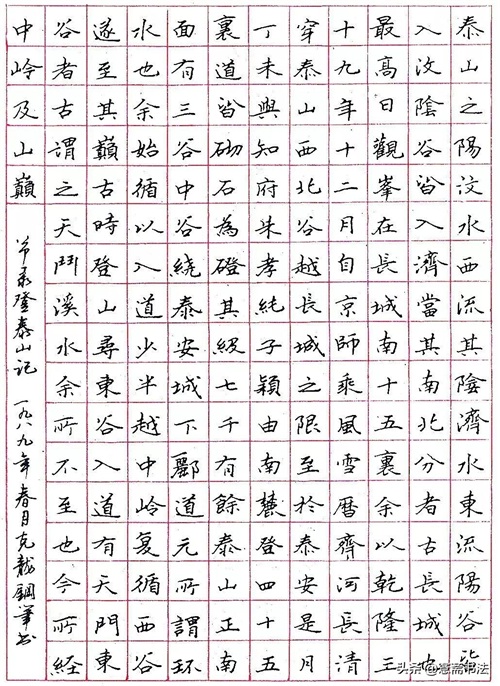 泰山之陽汶水西流其陰濟水東流陽谷皆
入汶陰谷皆入濟當其南北分者古長城也
最高日觀峯在長城南十五裏余以乾隆三
十九年十二月自京師乘風雪曆齊河長清
穿泰山西北谷越長城之限至於泰安是月
丁未與知府朱孝純子穎由南麓登四十五
裏道皆砌石為磴其級七千有餘泰山正南
面有三谷中谷繞泰安城下酈道元所謂环
水也余始循以入道少半越中岭复循西谷
遂至其巔古時登山尋東谷入道有天門東
谷者古謂之天鬥溪水余所不至也今所經
中岭及山巔
节录登泰山记 一九八九年春月克龍鋼筆书
头条@慧斋书法